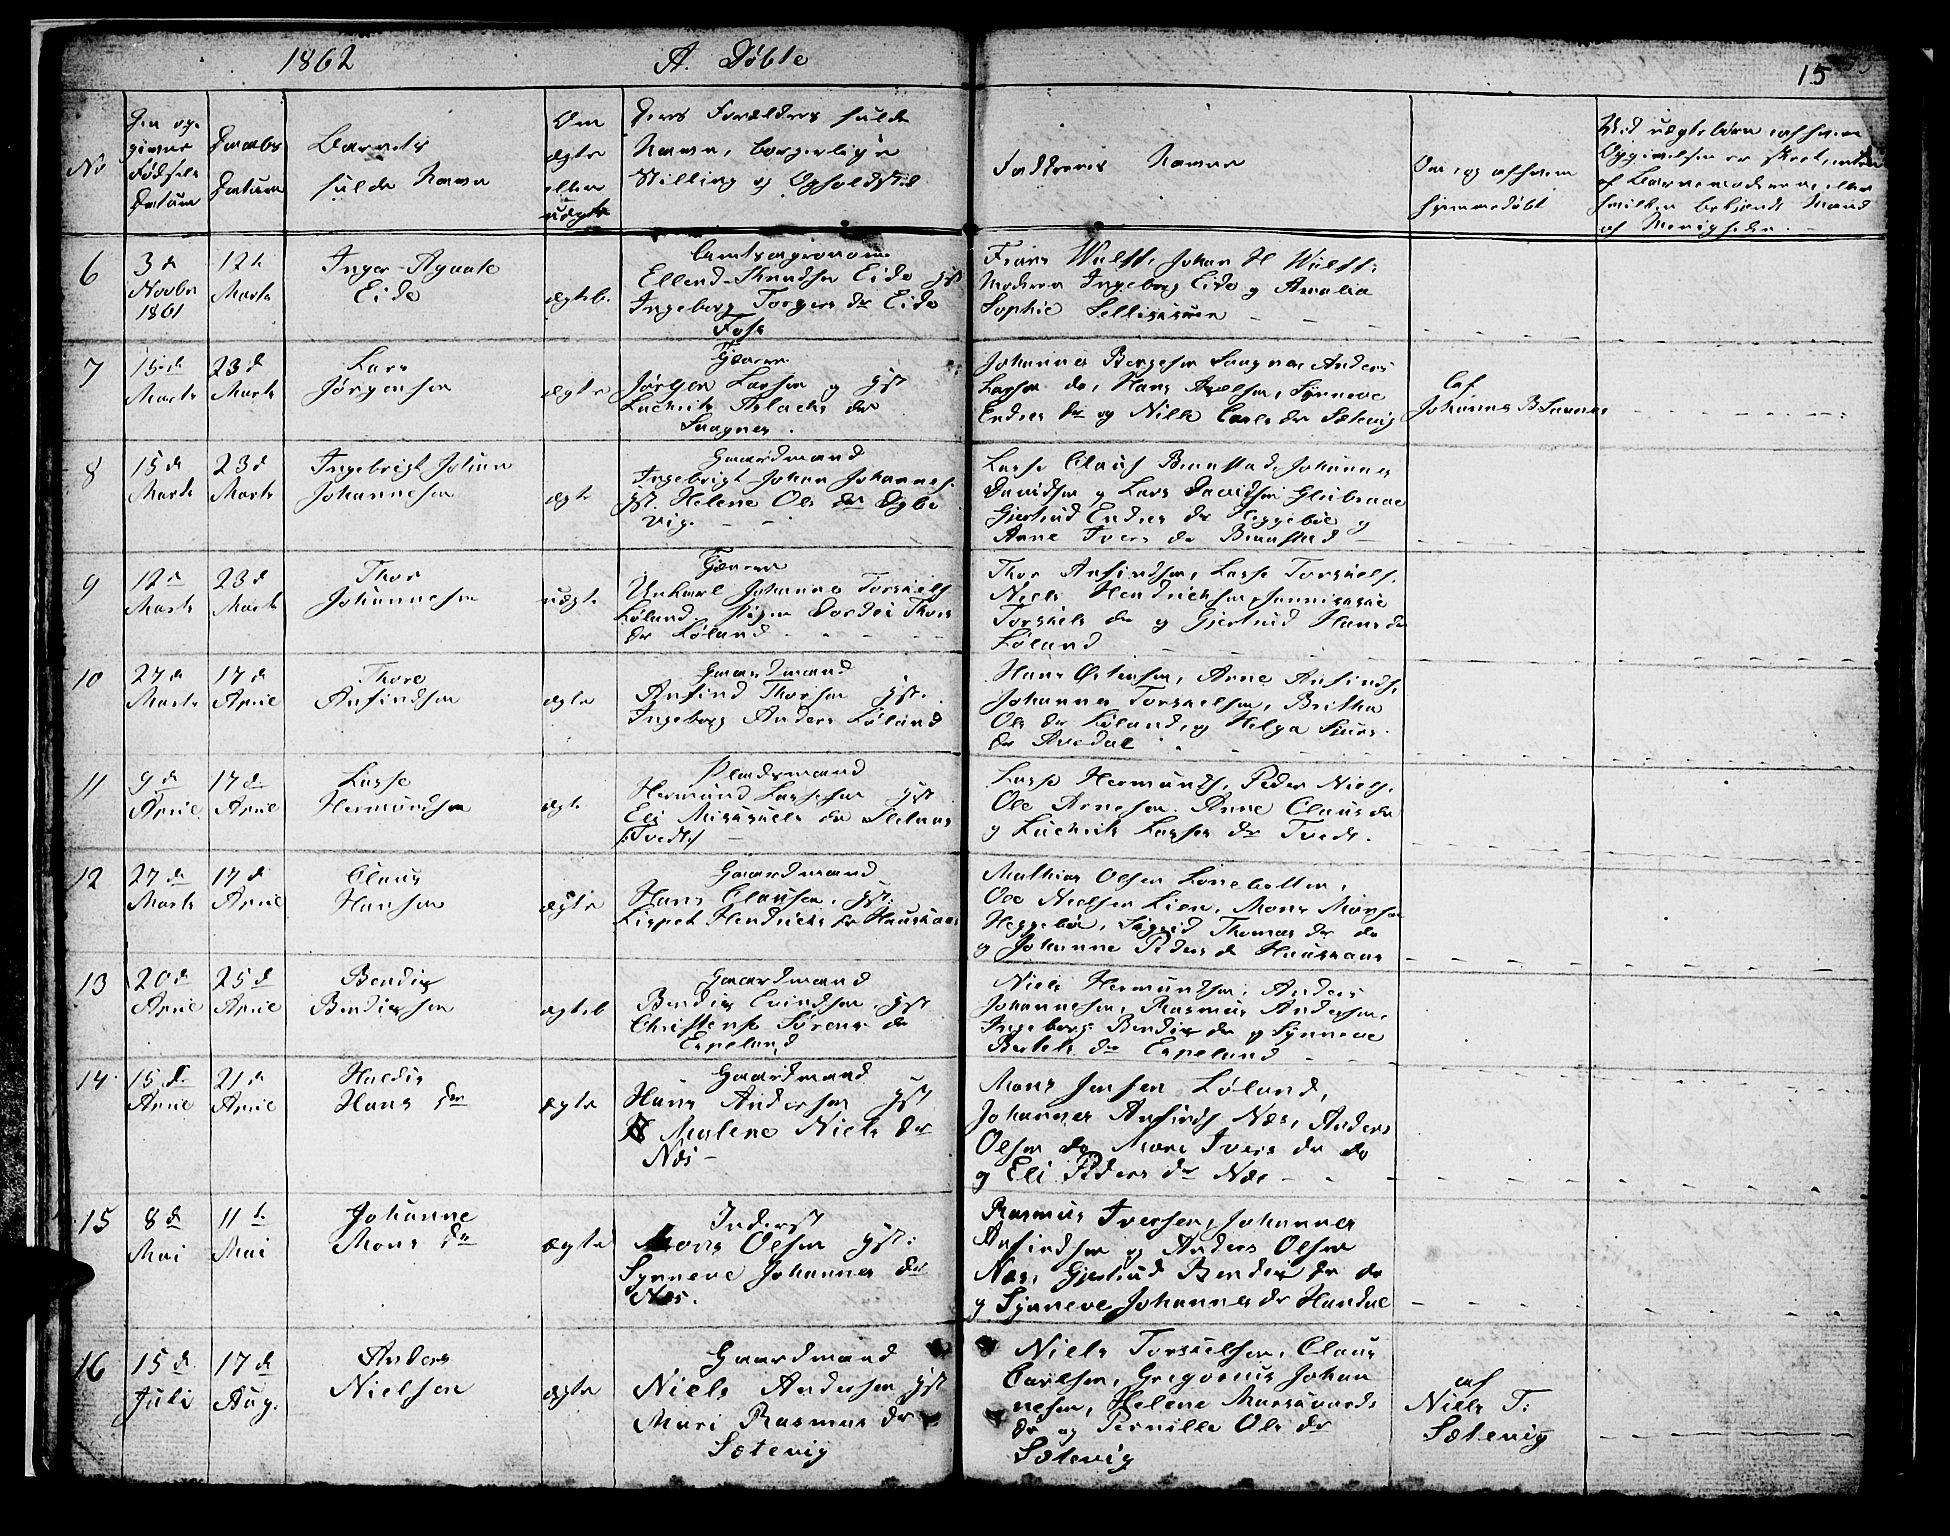 1862
A. Døbte
15
No
Den op-
givne
Fødsels
Datum
Daabs
Datum
Barnets
fulde Navn
Om
ægte
eller
uægte
Dens Forældres fulde
Navn, borgerlige
Stilling og Opholdsted
Faddernes Navne
Om og af hvem
hjemmedøbt
Ved uægte Børn af hvem
Opgivelsen er skeet, enten
af Barnemoderen eller
hvilken bekjendt Mand
af Menigheden.
6
3 d
Novbr
1861
12te
Marts
Inger Agaate
Eide
ægteb.
Amtsagronom
Ellend Knudsen Eide Hst
Ingeborg Torgers dr Eide
Foss
Frans Wulff, Johan H Wulff,
Moderen Ingeborg Eide og Amalia
Sophie
7
15 d
Marts
23 d
Marts
Lars
Jørgensen
ægte
Jørgen Larsen og Hst
Luckris Aslacks dr
Saagnes.
Johannes Børgesen Saagnes, Anders
Larsen do, Hans Axelsen, Synneve
Endres dr og Nille Carls dr Sætevig
af
Johannes B Saagnes
8
15 d
Marts
23 d
Marts
Ingebrigt Johan
Johannesen
ægte
Gaardmand
Ingebrigt Johan Johannes.
Hst. Helene Ols dr Dybe
vig.
Lasse Claus Brunstad, Johannes
Davidsen og Lars Davidsen
Gjertrud Endres dr Heggebøe og
Anne Ivers dr Brunstad
9
12 d
Marts
23 d
Marts
Thor
Johannesen
uægte
Unkarl Johannes Torskels
Løland. Pigen Dordei Thors
dr Løland
Thor Anfindsen, Lasse Torskels.
Niels Hendriksen,
Torskels dr og Gjertrud Hans dr
Løland
10
27 d
Marts
17 d
April
Thore
Anfindsen
ægte
Gaardmand
Anfind Thorsen Hst.
Ingeborg Anders Løland
Hans Østensen, Arne Anfinds,
Johannes Torskelsen, Britha
Ols dr Løland, og Helga Sjurs
dr Avedal
11
9 d
April
17 d
April
Lasse
Hermundsen
ægte
Pladsmand
Hermund Lassesen Hst
Eli Mikkels dr
/:Tvedt:/
Lasse Hermunds, Peder Niels,
Ole Arnesen. Anne Claus dr
og Luckris Lasses dr Tvedt.
12
27 d
Marts
17 d
April
Claus
Hansen
ægte
Gaardmand
Hans Clausen, Hst:
Lispet Hendricks dr Haukaas
Mathias Olsen Lonebotten,
Ole Nielsen Lien, Mons Monsen
Heggebøe, Sigrid Thomas dr do
og Johanne Peders d Haukaas
13
20 d
April
25 d
April
Bendix
Bendixsen
ægteb
Gaardmand
Bendix Eivindsen, Hst
Christense Sørens dr
Espeland
Niels Hermundsen, Anders
Johannesen, Rasmus Andersen,
Ingeborg Bendix dr og Synneve
Bertels dr Espeland
14
15 d.
April
21 d
April
Haldis
Hans dr
ægte
Gaardmand
Hans Andersen Hst
Malene Niels dr
Næs
Mons Jensen Løland,
Johannes Anfinds Næs, Anders
Olsen do Mari Ivers dr do
og Eli Peders dr Næs
15
8 d
Mai
11 t.
Mai
Johanne
Mons dr
ægte
Inderst
Mons Olsen Hst:
Synneve Johannes dr
Næs.
Rasmus Iversen, Johannes
Anfindsen og Anders Olsen
Næs, Gjertrud Bendix dr do
og Synneve Johannes dr Handal
16
15 d
Juli
17 d
Aug.
Anders
Nielsen
ægte
Gaardmand
Niels Andersen Hst
Mari Rasmus dr
Sætevig
Niels Torskelsen, Claus
Carlsen, Gregorius Johan
nesen, Helene Markvards
dr og Pernille Ols dr
Sætevig
af
Niels T:
Sætevig